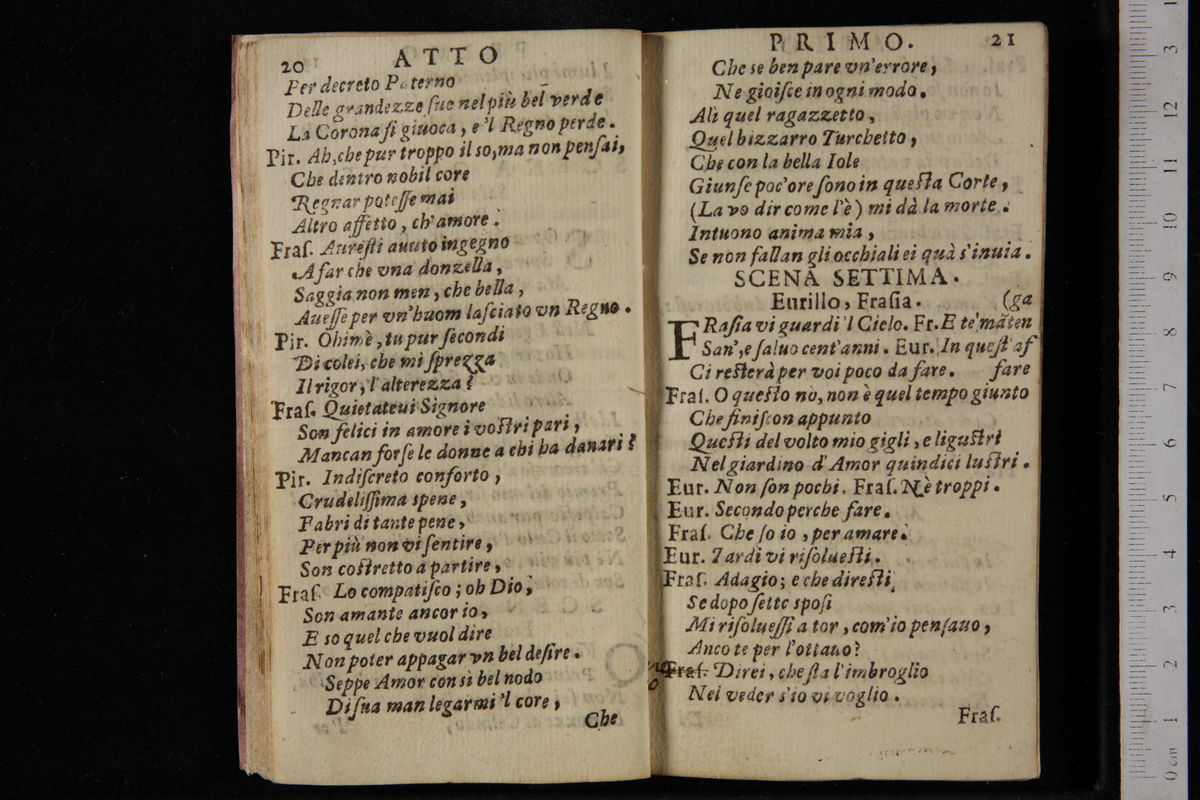 20 ATTO
Per decreto Paterno
Delle grandezze ſue nel più bel verde
La Corona ſi giuoca, e 'l Regno perde.
Pir. Ah, che pur troppo il so, ma non penſai,
Che dentro nobil core
Regnar poteſſe mai
Altro affetto, ch'amore.
Fraſ. Aureſti auuto ingegno
A far che vna donzella,
Saggia non men, che bella,
Aueſſe per vn'huom laſciato vn Regno.
Pir. Ohimè, tu pur ſecondi
Di colei, che mi ſprezza
Il rigor, l'alterezza?
Fraſ. Quietateui Signore
Son felici in amore i voſtri pari,
Mancan forſe le donne a chi ha danari?
Pir. Indiſcreto conforto,
Crudeliſſima spene,
Fabri di tante pene,
Per più non vi ſentire,
Son coſtretto à partire,
Fraſ. Lo compatiſco; oh Dio,
Son amante ancor io,
E so quel che vuol dire
Non poter appagar vn bel deſire.
Seppe Amor con sì bel nodo
Di ſua man legarmi 'l core,
Che
PRIMO. 21
Che se ben pare vn'errore,
Ne gioiſce in ogni modo.
Alì quel ragazzetto,
Quel bizzarro Turchetto,
Che con la bella Iole
Giunſe poc'ore ſono in queſta Corte,
(La vo dir come l'è) mi dà la morte.
Intuono anima mia,
Se non fallan gli occhiali ei quà s'inuia.
SCENA SETTIMA.
Eurillo, Fraſia. (ga
FRaſia vi guardi 'l Cielo. Fr. E te mãten
San', e ſaluo cent'anni. Eur. In queſt'af
Ci reſterà per voi poco da fare. fare
Fraſ. O queſto nò, non è quel tempo giunto
Che finiſcon appunto
Queſti del volto mio gigli, e liguſtri
Nel giardino d'Amor quindici luſtri.
Eur. Non ſon pochi. Fraſ. Nè troppi.
Eur. Secondo perche fare.
Fraſ. Che ſo io, per amare.
Eur. Tardi vi riſolueſti.
Fraſ. Adagio; e che direſti,
Se dopo ſette spoſi
Mi riſolueſſi a tor, com'io penſauo,
Anco te per l'ottauo?
Fraſ. Direi, che ſta l'imbroglio
Nel veder s'io vi voglio.
Fraſ.